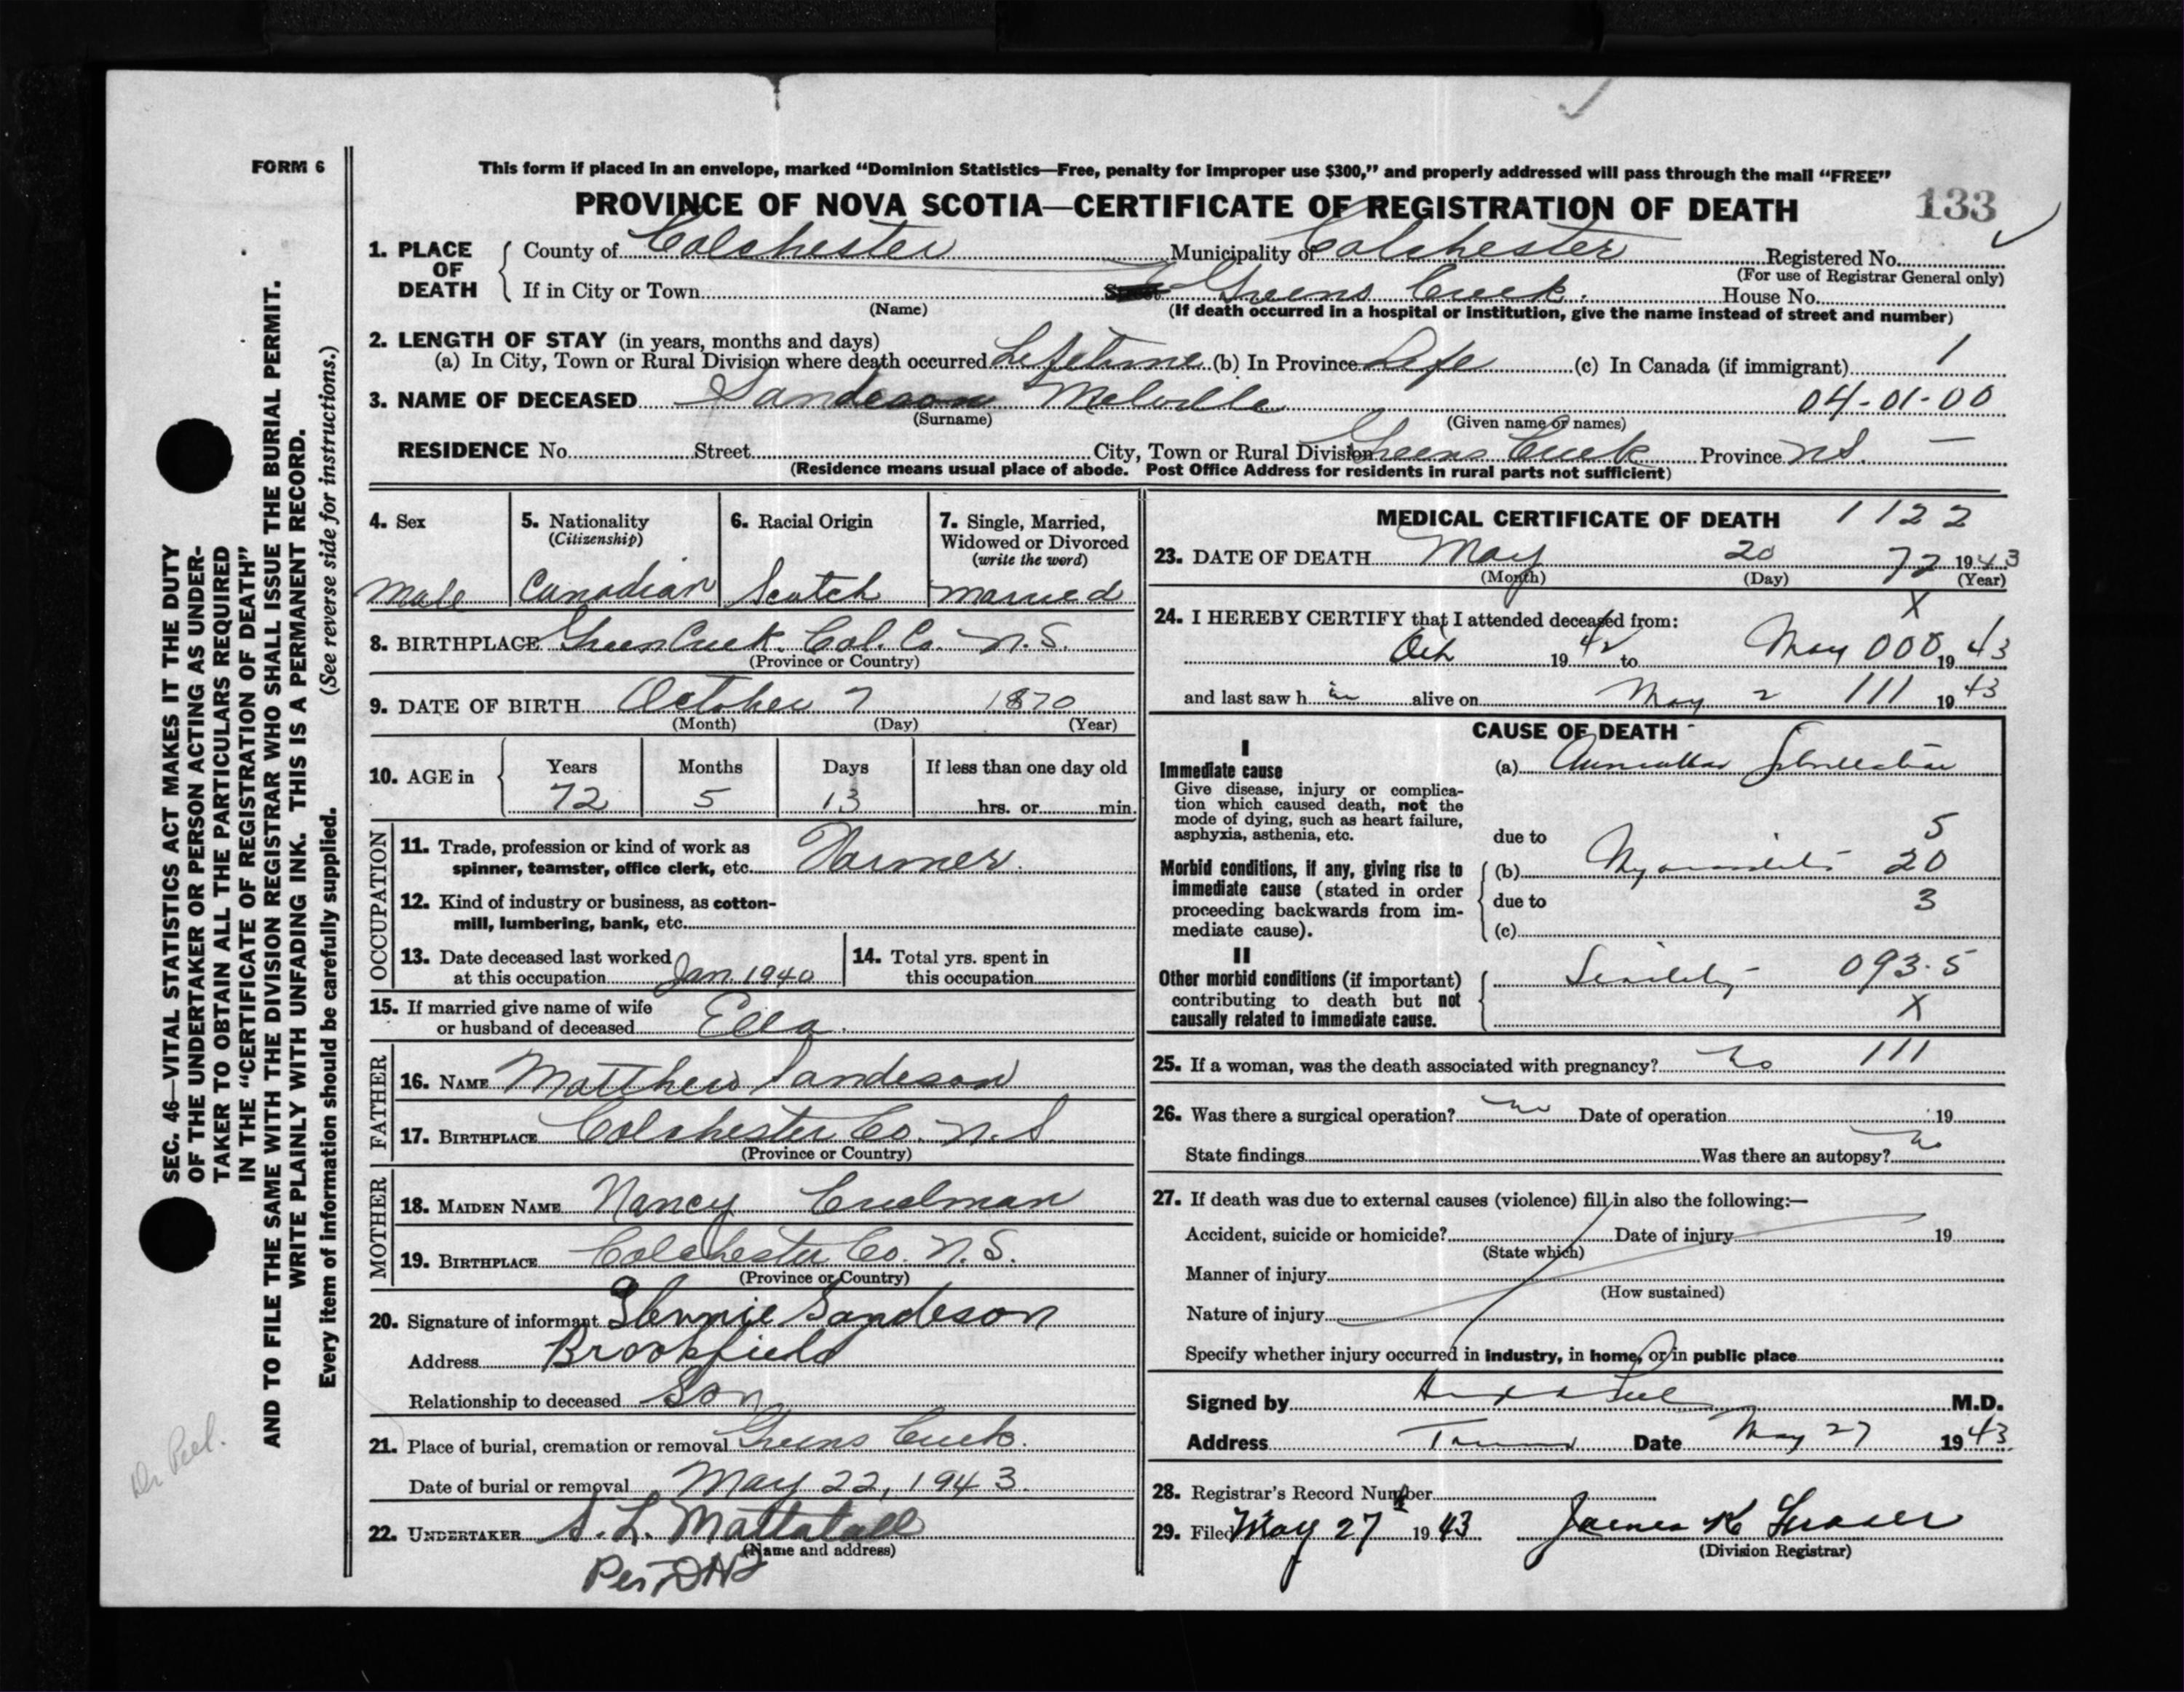 FORM 6
This form if placed in an envelope, marked “Dominion Statistics—Free, penalty for improper use $300,” and properly addressed will pass through the mail “FREE”
PROVINCE OF NOVA SCOTIA—CERTIFICATE OF REGISTRATION OF DEATH 133
1. PLACE OF DEATH County of Colchester Municipality of Colchester Registered No.
(For use of Registrar General only)
If in City or Town Street Greens Creek. House No.
(Name) (If death occurred in a hospital or institution, give the name instead of street and number)
2. LENGTH OF STAY (in years, months and days)
(a) In City, Town or Rural Division where death occurred Lifetime (b) In Province Life (c) In Canada (if immigrant) 1
3. NAME OF DECEASED Sandeson Melville 04-01-00
(Surname) (Given name or names)
RESIDENCE No. Street City, Town or Rural Division Greens Creek Province N.S. —
(Residence means usual place of abode. Post Office Address for residents in rural parts not sufficient)
4. Sex 5. Nationality 6. Racial Origin 7. Single, Married,
(Citizenship) Widowed or Divorced
(write the word)
Male Canadian Scotch Married
8. BIRTHPLACE Greens Creek. Col. Co. N.S.
(Province or Country)
9. DATE OF BIRTH October 7 1870
(Month) (Day) (Year)
10. AGE in Years Months Days If less than one day old
72 5 13 hrs. or min.
OCCUPATION
11. Trade, profession or kind of work as
spinner, teamster, office clerk, etc. Farmer.
12. Kind of industry or business, as cotton-
mill, lumbering, bank, etc.
13. Date deceased last worked
at this occupation Jan. 1940
14. Total yrs. spent in
this occupation
15. If married give name of wife
or husband of deceased Ella.
FATHER
16. NAME Matthew Sandeson
17. BIRTHPLACE Colchester Co. N.S.
(Province or Country)
MOTHER
18. MAIDEN NAME Nancy Creelman
19. BIRTHPLACE Colchester Co. N.S.
(Province or Country)
20. Signature of informant Glennie Sandeson
Address Brookfield
Relationship to deceased Son
21. Place of burial, cremation or removal Greens Creek.
Date of burial or removal May 22, 1943.
22. UNDERTAKER S. L. Mattatall
(Name and address)
Per
MEDICAL CERTIFICATE OF DEATH 1122
23. DATE OF DEATH May 20 72 1943
(Month) (Day) (Year)
X
24. I HEREBY CERTIFY that I attended deceased from:
Oct 1942 to May 000 1943
and last saw h im alive on May 2 111 1943
CAUSE OF DEATH
I
Immediate cause (a) Auricular fibrillation
Give disease, injury or complica-
tion which caused death, not the
mode of dying, such as heart failure,
asphyxia, asthenia, etc.
due to 5
Morbid conditions, if any, giving rise to (b) Myocarditis 20
immediate cause (stated in order due to 3
proceeding backwards from im-
mediate cause). (c)
II
Other morbid conditions (if important) Senility 093.5
contributing to death but not
causally related to immediate cause. X
25. If a woman, was the death associated with pregnancy? No 111
26. Was there a surgical operation? no Date of operation 19
State findings Was there an autopsy? no
27. If death was due to external causes (violence) fill in also the following:—
Accident, suicide or homicide? Date of injury 19
(State which)
Manner of injury
(How sustained)
Nature of injury
Specify whether injury occurred in industry, in home, or in public place
Signed by Peel M.D.
Address Truro Date May 27 1943
28. Registrar's Record Number
29. Filed May 27 1943 James K Fraser
(Division Registrar)
SEC. 46—VITAL STATISTICS ACT MAKES IT THE DUTY
OF THE UNDERTAKER OR PERSON ACTING AS UNDER-
TAKER TO OBTAIN ALL THE PARTICULARS REQUIRED
IN THE “CERTIFICATE OF REGISTRATION OF DEATH”
AND TO FILE THE SAME WITH THE DIVISION REGISTRAR WHO SHALL ISSUE THE BURIAL PERMIT.
WRITE PLAINLY WITH UNFADING INK. THIS IS A PERMANENT RECORD.
Every item of information should be carefully supplied. (See reverse side for instructions.)
Dr Peel.